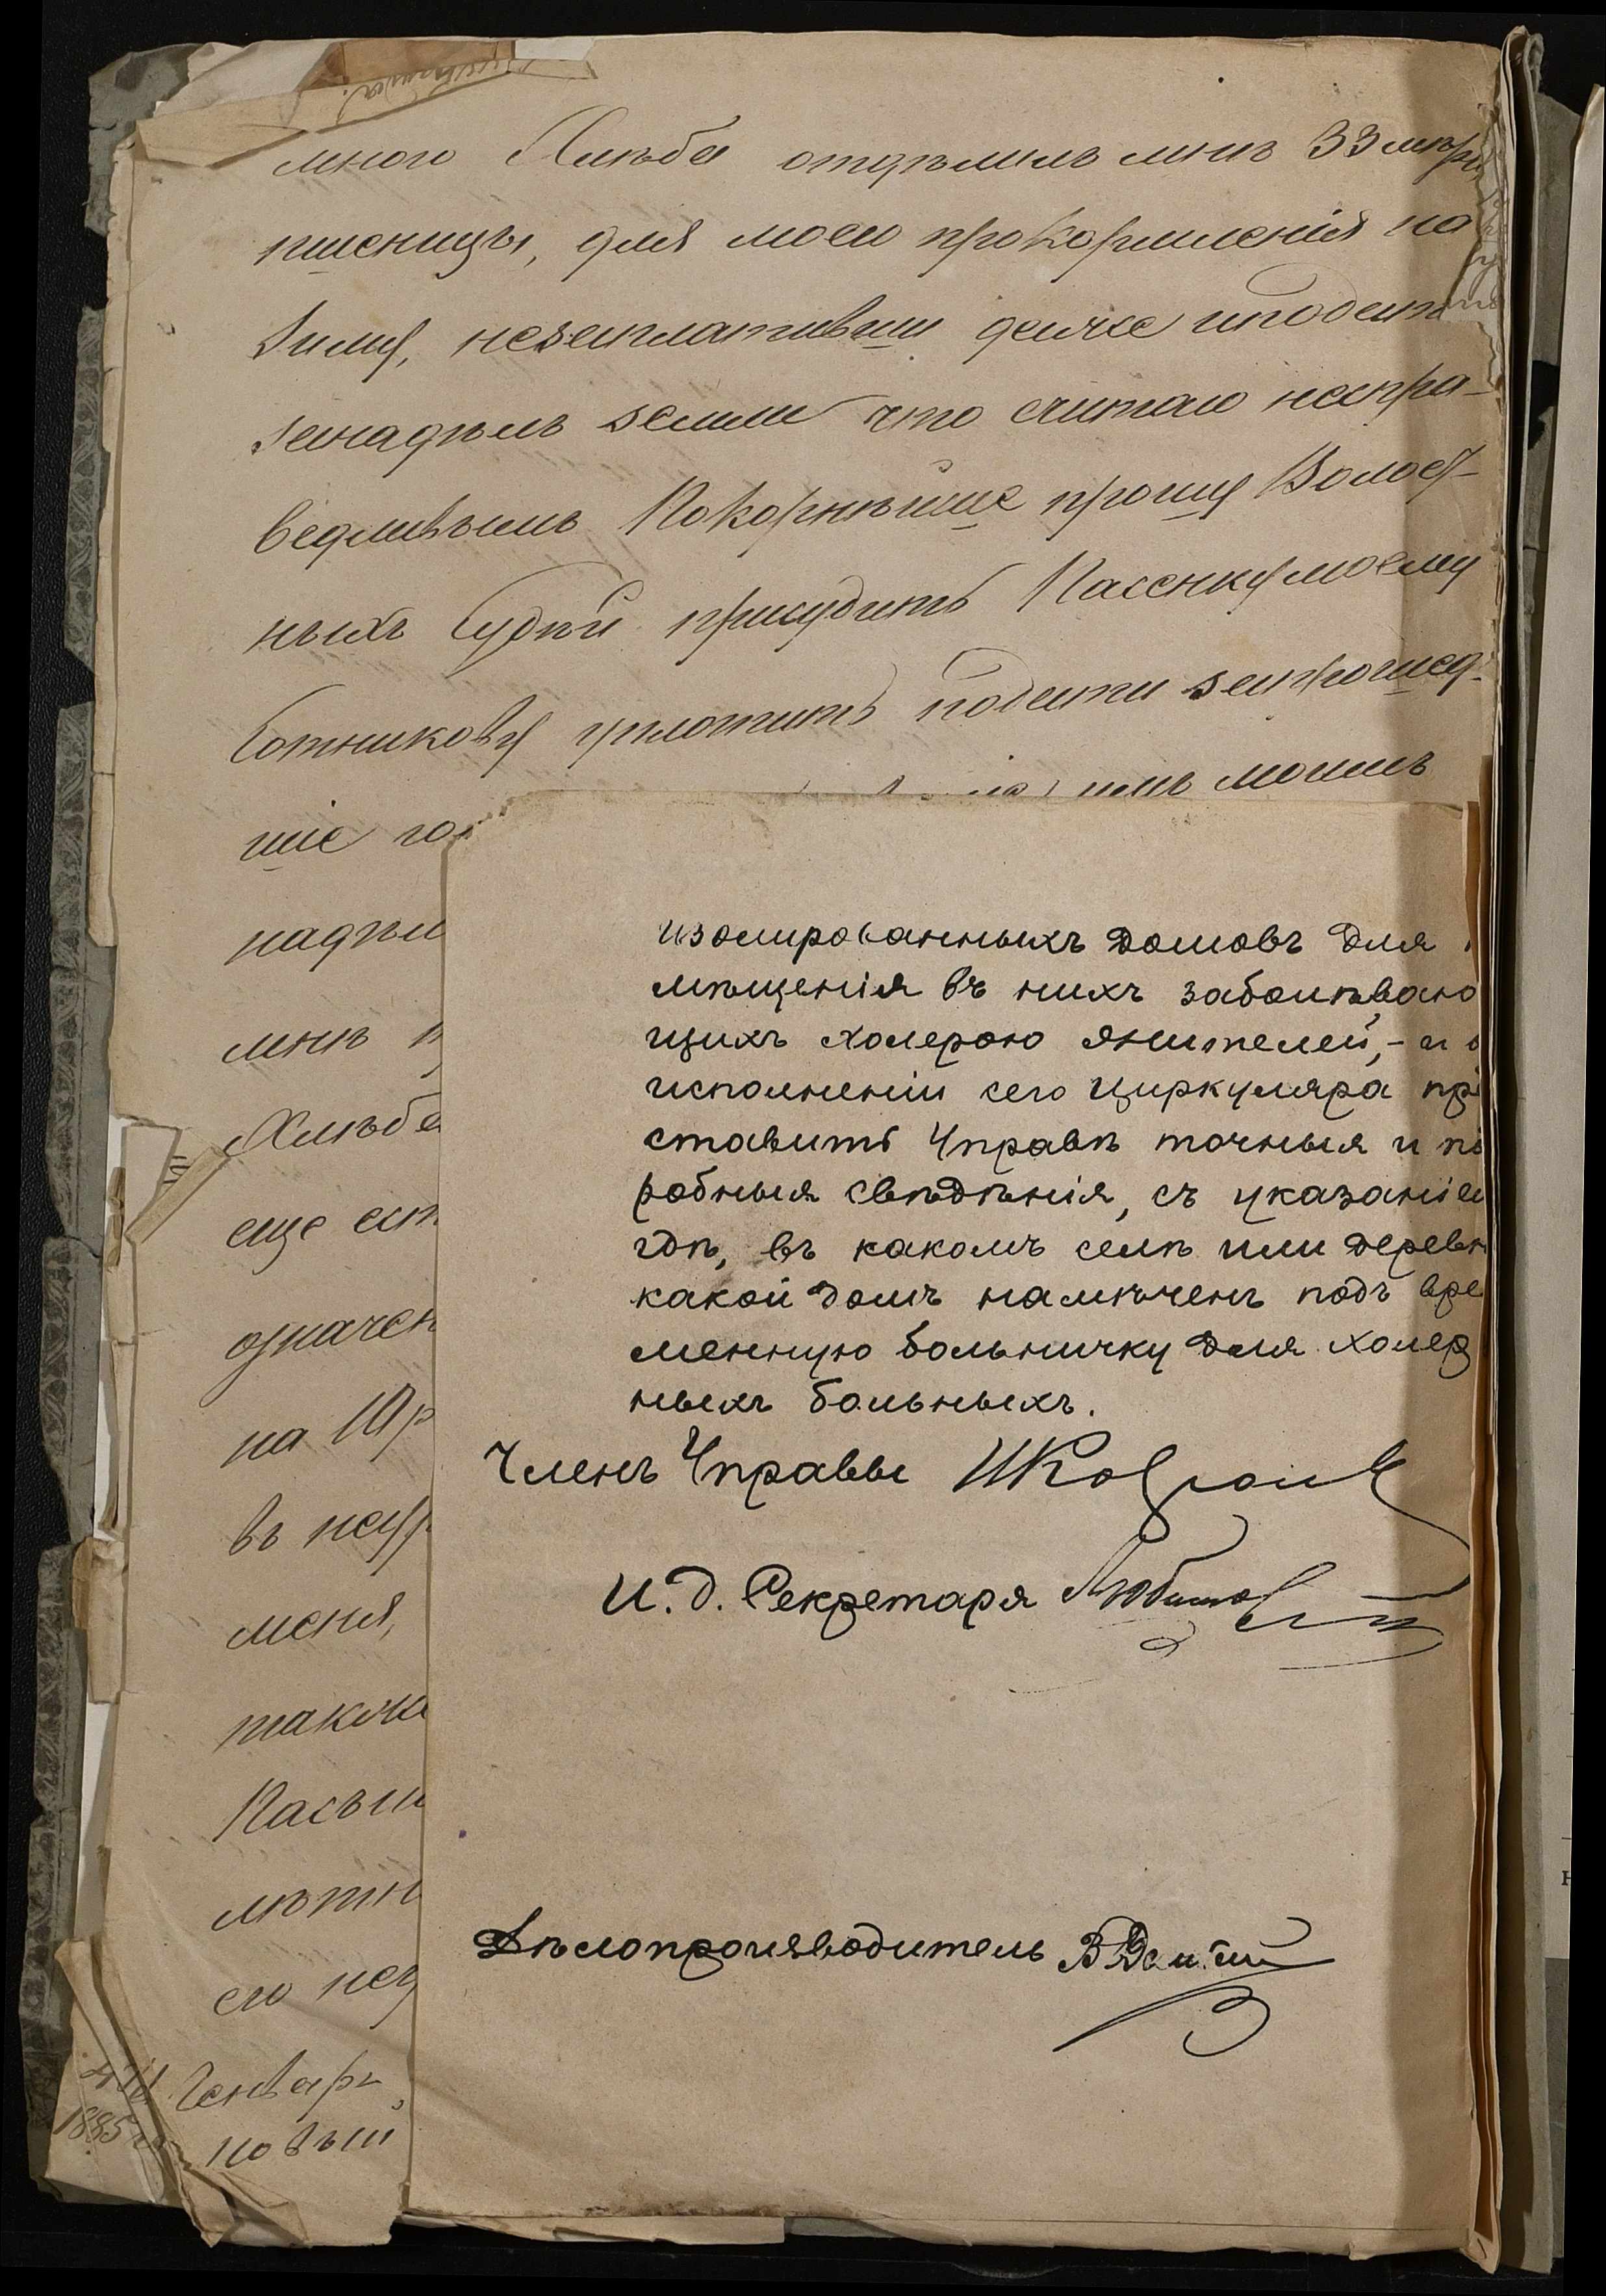 много Хлѣба отдѣлилъ мнѣ 33 мѣры
пшеницы, для моего прокормленія на
зиму, незаплативши даже иподати
занадѣлъ земли что считаю неспра-
ведливымъ Покорнѣйше прошу Волост-
ныхъ Судей присудить Пасенку моему
Сотникову уплотить подати запрошед-
шіе го
имъ моимъ
надѣл
мнѣ
Хлѣба
еще
означен
на Юр
въ
меня,
такжа
Пасын
лѣтн
его
Генваря
1885
новый
изолированныхъ домовъ для
мѣщенія въ нихъ заболѣваю
щихъ холерою жителей, - и о
исполненіи сего циркуляра пре
ставить Управѣ точныя и по
робныя свѣдѣнія, съ указаніем
гдѣ, въ какомъ селѣ или деревн
какой домъ намѣченъ подъ вре
менную больничку для холер
ныхъ больныхъ.
Членъ Управы
И. д. Секретаря
Дѣлопроизводитель